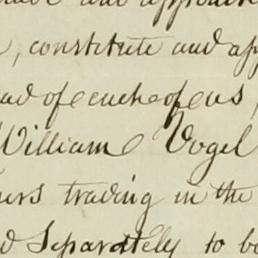 and approve
, constitute and app
ad of each of us,
William Vogel
ers trading in the
d Separately to be